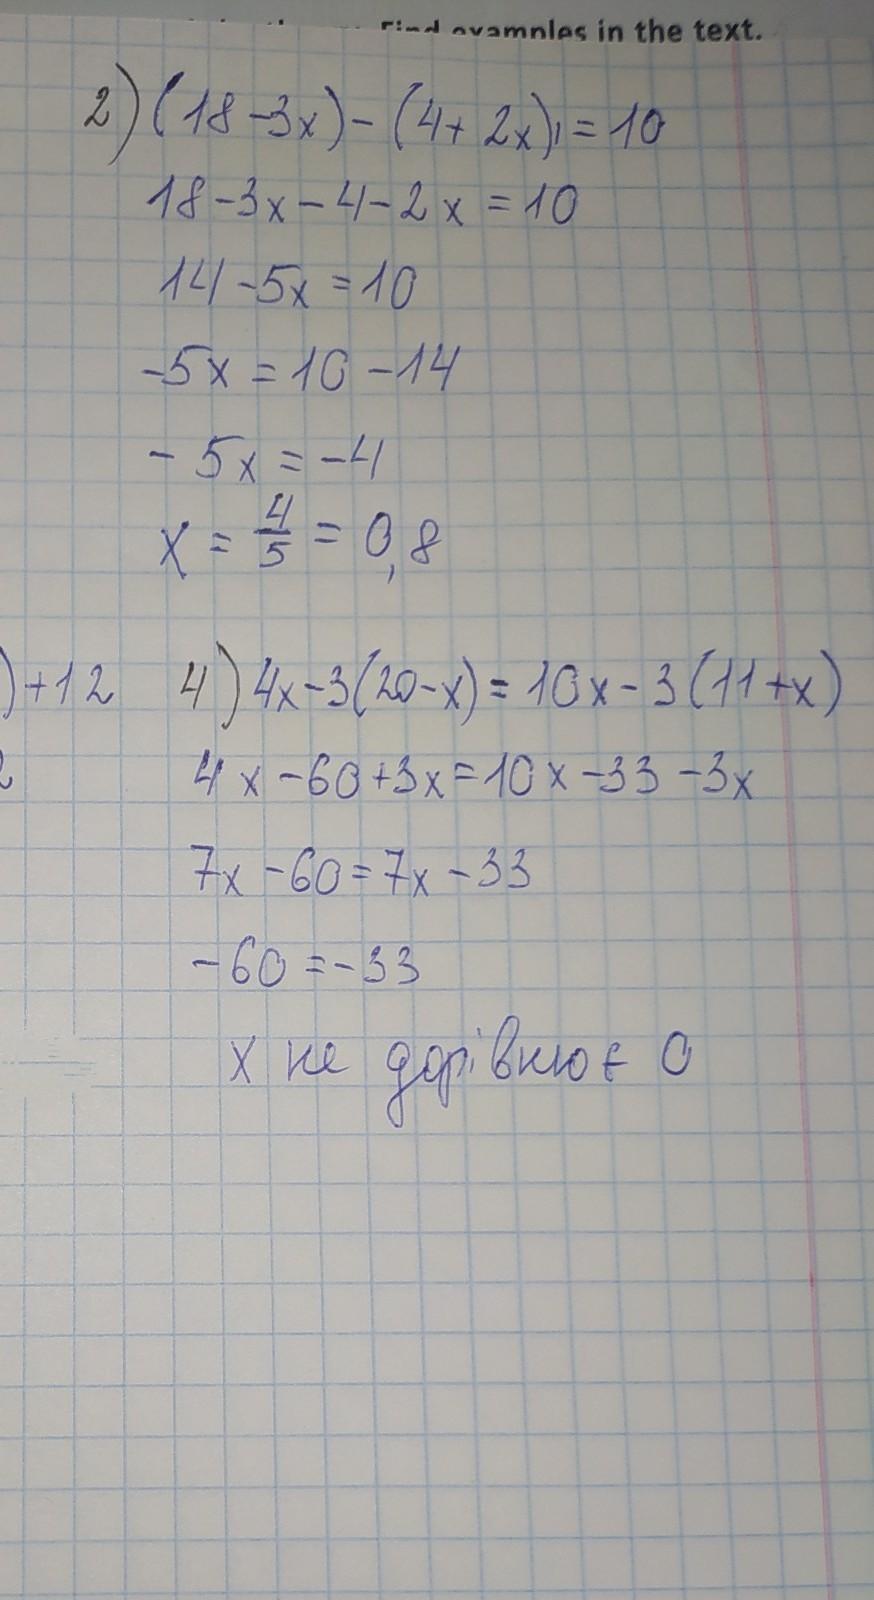 Find examples in the text.
2) (18-3x)-(4+2x)=10
18-3x-4-2x=10
14-5x=10
-5x=10-14
-5x=-4
x=4/5=0,8
)+12
4) 4x-3(20-x)=10x-3(11+x)
2
4x-60+3x=10x-33-3x
7x-60=7x-33
-60=-33
x не дорівнює 0